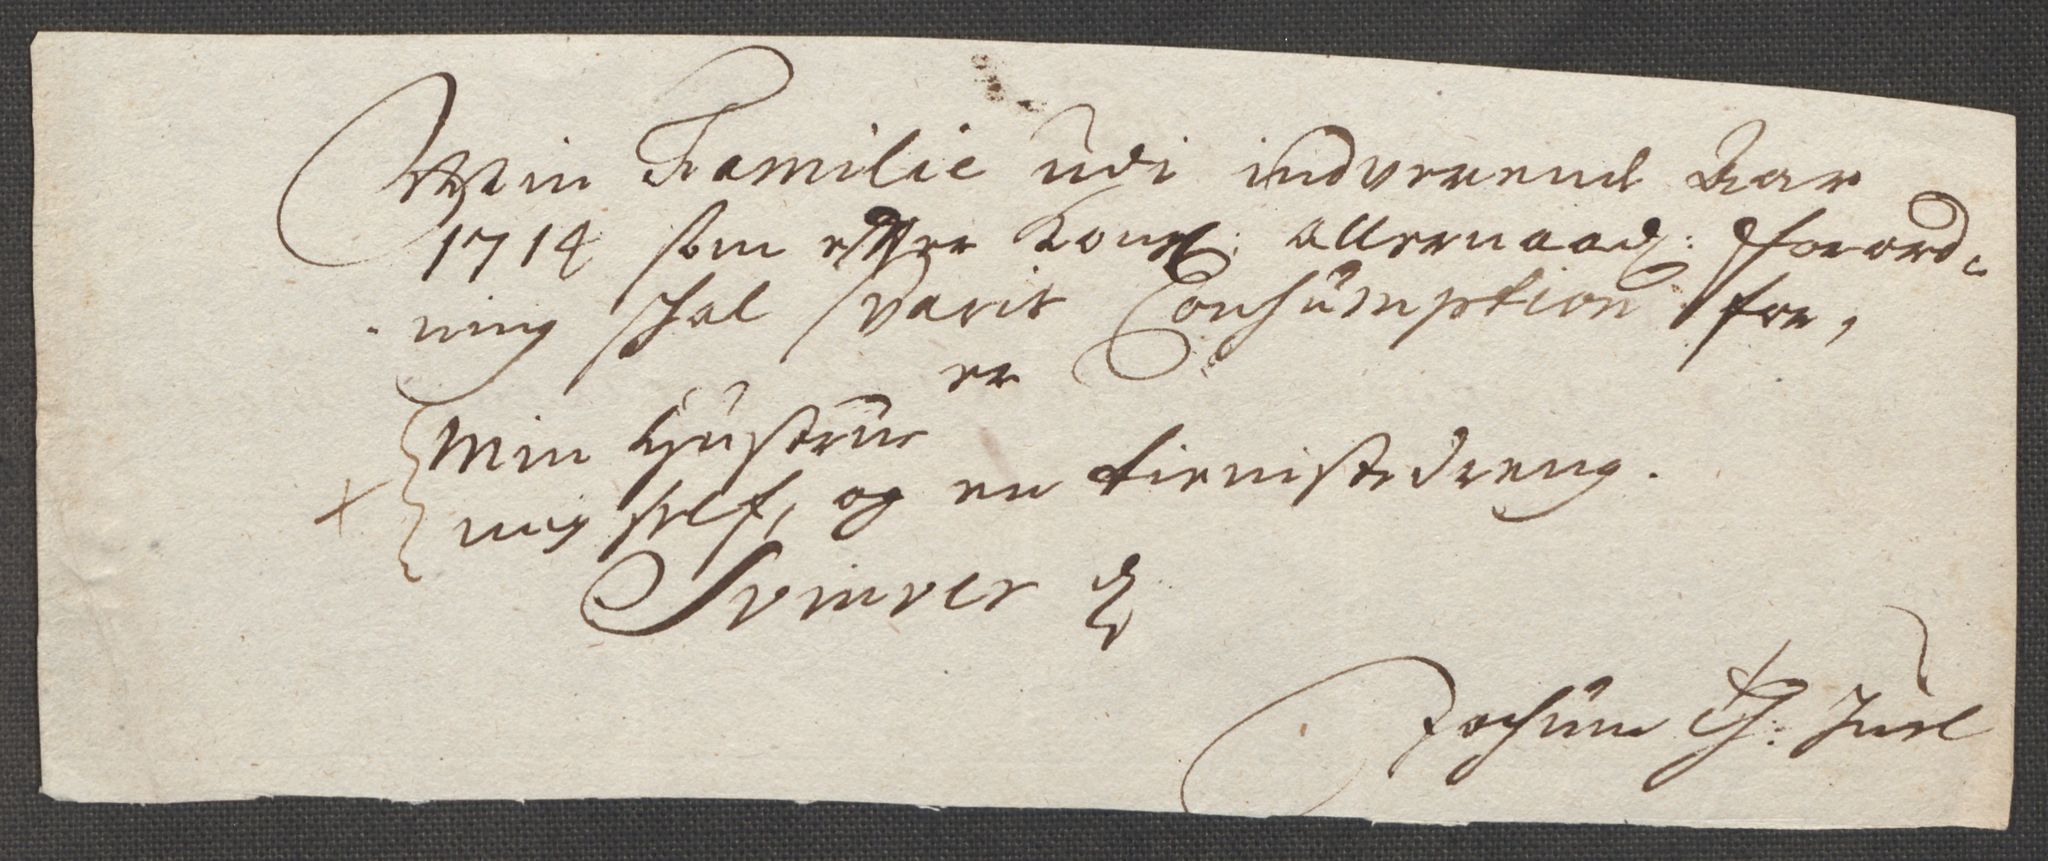 Min Familie udi indverende Aar
1714 som effter Kongl: allernaadg: fforord-
ning schal svarit Consumption for,
er
Min Hustrue
mig self, og en tienistedreng.
Svinver
Jochum Juel